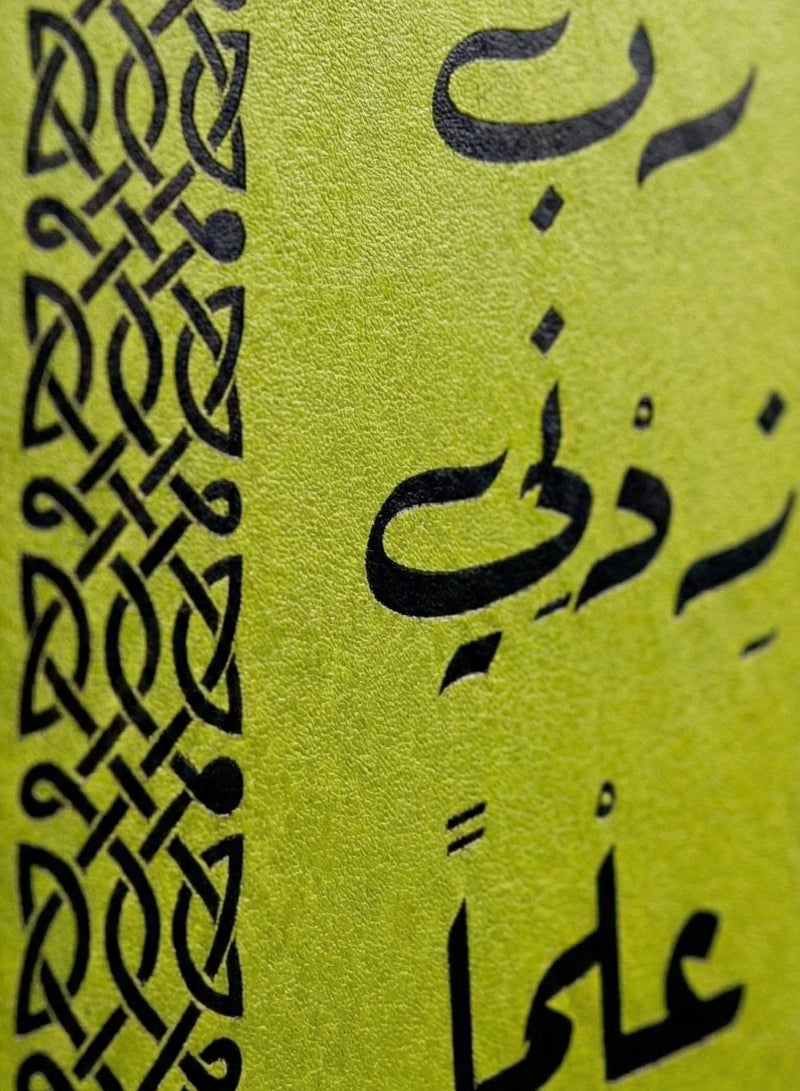 رب
زِدْنِي
عِلْماً